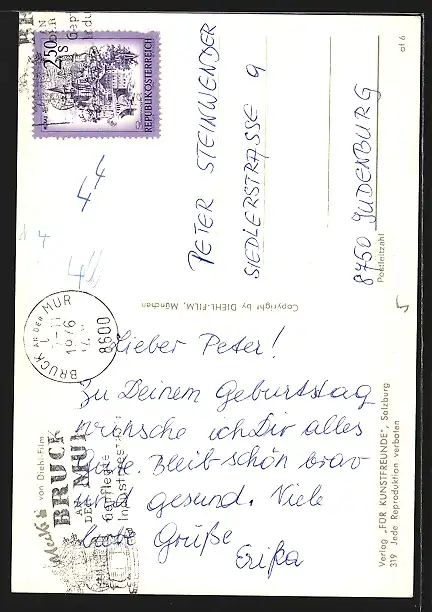 2.50
S
REPUBLIK ÖSTERREICH
PETER STEINWENDER
SIEDLERSTRASSE 9
8750 JUDENBURG
Postleitzahl
at 6
44
4
BRUCK AN DER MUR
1
1976
8600
Copyright by DIEHL-FILM, München
Lieber Peter!
Zu Deinem Geburtstag
wünsche ich Dir alles
Gute. Bleib schön brav
und gesund. Viele
liebe Grüße
Erika
Mecki von Diehl-Film
BRUCK
AN
DER MUR
Gepflegte
Industriestadt
Verlag „FÜR KUNSTFREUNDE", Salzburg
319 Jede Reproduktion verboten
5